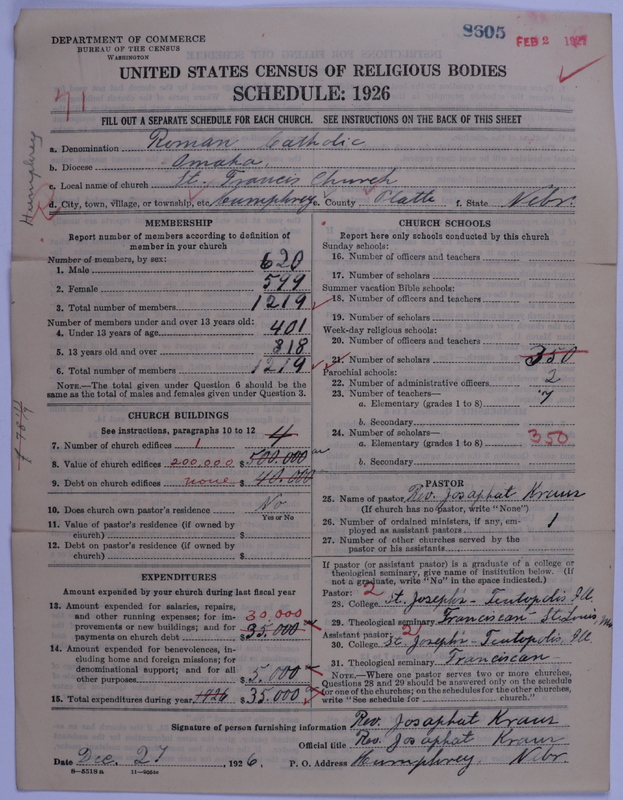 8605
FEB 2 1927
DEPARTMENT OF COMMERCE
BUREAU OF THE CENSUS
WASHINGTON
UNITED STATES CENSUS OF RELIGIOUS BODIES
SCHEDULE: 1926
71
FILL OUT A SEPARATE SCHEDULE FOR EACH CHURCH. SEE INSTRUCTIONS ON THE BACK OF THIS SHEET
Humphrey
a. Denomination Roman Catholic
b. Diocese Omaha,
c. Local name of church St. Francis Church
d. City, town, village, or township, etc. Humphrey e. County Platte f. State Nebr.
MEMBERSHIP
Report number of members according to definition of
member in your church
Number of members, by sex:
1. Male 620
2. Female 599
3. Total number of members 1219
Number of members under and over 13 years old:
4. Under 13 years of age 401
5. 13 years old and over 818
6. Total number of members 1219
NOTE.—The total given under Question 6 should be the
same as the total of males and females given under Question 3.
CHURCH BUILDINGS
See instructions, paragraphs 10 to 12
7. Number of church edifices 1 4
8. Value of church edifices 200,000 $500.000
9. Debt on church edifices none $40.000
10. Does church own pastor's residence No
Yes or No
11. Value of pastor's residence (if owned by
church) $
12. Debt on pastor's residence (if owned by
church) $
EXPENDITURES
Amount expended by your church during last fiscal year
13. Amount expended for salaries, repairs,
and other running expenses; for im-
provements or new buildings; and for
payments on church debt 30,000 $35.000
14. Amount expended for benevolences, in-
cluding home and foreign missions; for
denominational support; and for all
other purposes 5.000
15. Total expenditures during year 1926 $35.000
CHURCH SCHOOLS
Report here only schools conducted by this church
Sunday schools:
16. Number of officers and teachers
17. Number of scholars
Summer vacation Bible schools:
18. Number of officers and teachers
19. Number of scholars
Week-day religious schools:
20. Number of officers and teachers
21. Number of scholars 350
Parochial schools:
22. Number of administrative officers 2
23. Number of teachers—
a. Elementary (grades 1 to 8) 7
b. Secondary
24. Number of scholars—
a. Elementary (grades 1 to 8) 350
b. Secondary
PASTOR
25. Name of pastor Rev. Josaphat Kraus
(If church has no pastor, write "None")
26. Number of ordained ministers, if any, em-
ployed as assistant pastors 1
27. Number of other churches served by the
pastor or his assistants
If pastor (or assistant pastor) is a graduate of a college or
theological seminary, give name of institution below. (If
not a graduate, write "No" in the space indicated.)
Pastor: 2
28. College St. Joseph's - Teutopolis, Ill.
29. Theological seminary Franciscan - St. Louis, Mo
Assistant pastor: 2
30. College St. Joseph's - Teutopolis, Ill.
31. Theological seminary Franciscan
NOTE.—Where one pastor serves two or more churches,
Questions 28 and 29 should be answered only on the schedule
for one of the churches; on the schedules for the other churches,
write "See schedule for church."
Signature of person furnishing information Rev. Josaphat Kraus
Official title Rev. Josaphat Kraus
Date Dec. 27, 1926. P. O. Address Humphrey, Nebr.
8-5518a